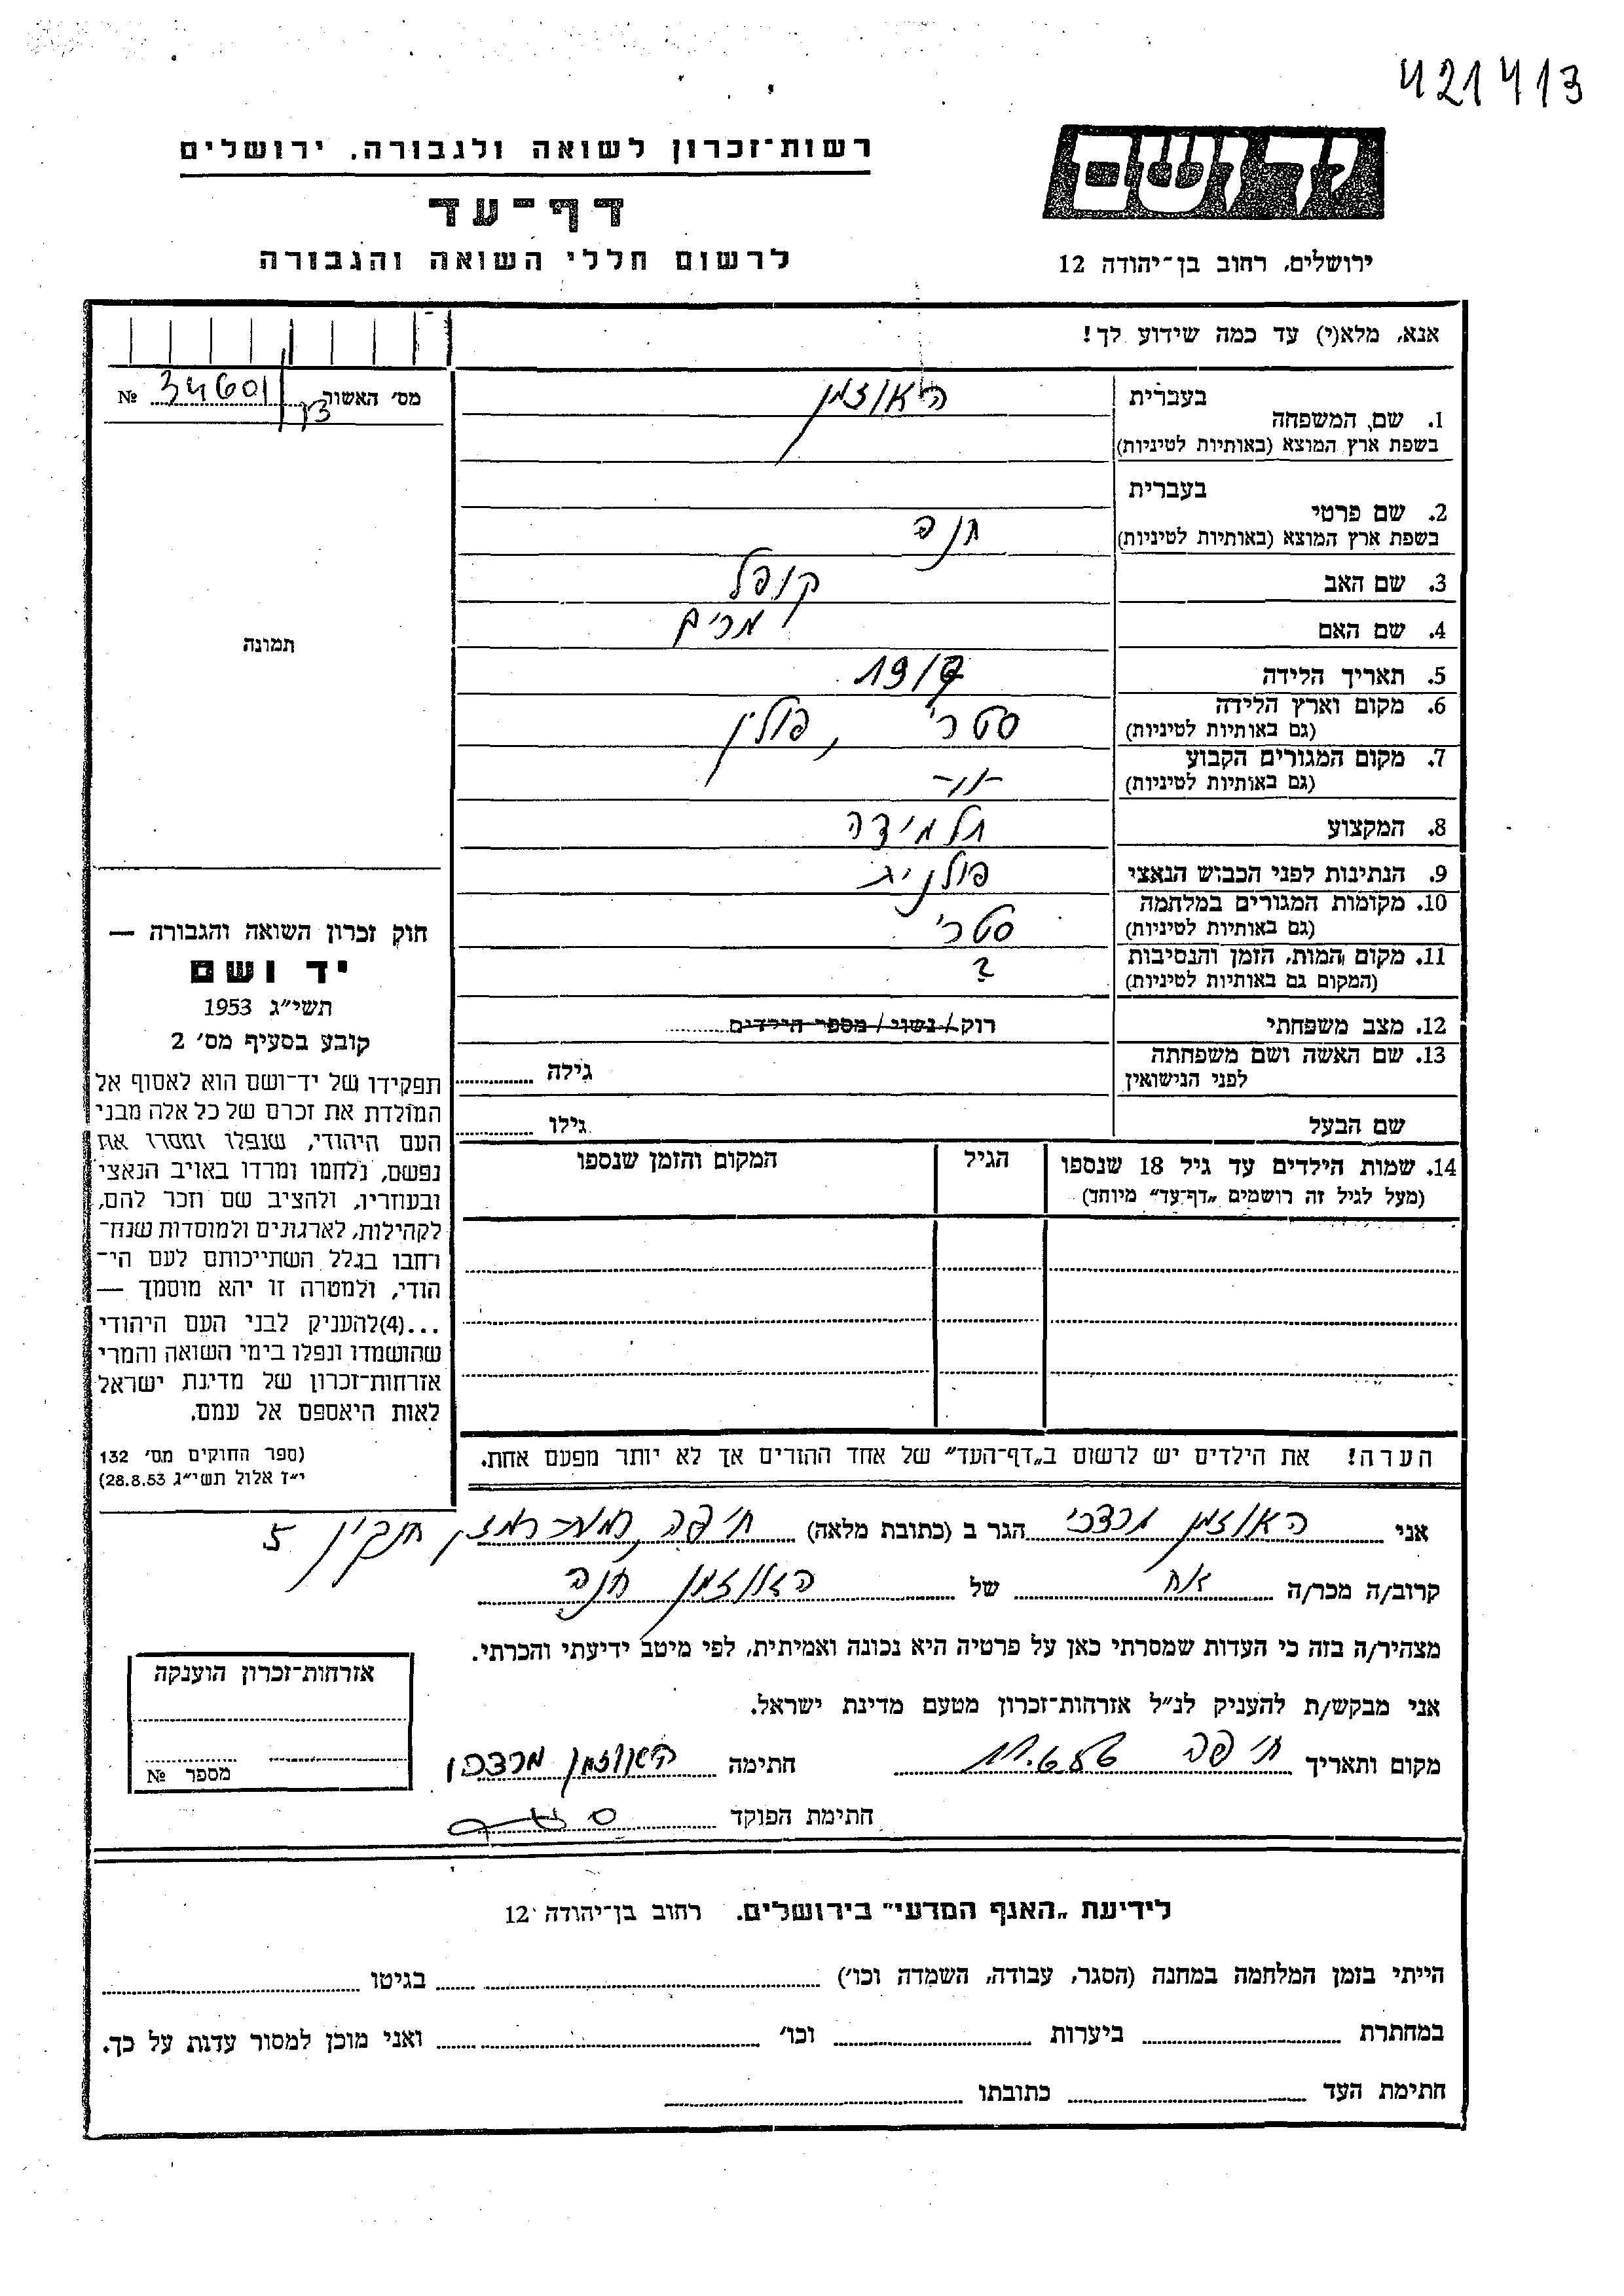 421413
יד ושם
רשות־זכרון לשואה ולגבורה, ירושלים
דף־עד
לרשום חללי השואה והגבורה
ירושלים, רחוב בן־יהודה 12
אנא, מלא(י) עד כמה שידוע לך!
מס׳ האשור 34601 №
בעברית האוזמן
1. שם המשפחה
בשפת ארץ המוצא (באותיות לטיניות)
בעברית
2. שם פרטי
בשפת ארץ המוצא (באותיות לטיניות) חנה
3. שם האב קופל
4. שם האם מרים
תמונה
5. תאריך הלידה
6. מקום וארץ הלידה סטרי, פולין
(גם באותיות לטיניות)
7. מקום המגורים הקבוע -״-
(גם באותיות לטיניות)
8. המקצוע תלמידה
9. הנתינות לפני הכבוש הנאצי פולנית
10. מקומות המגורים במלחמה סטרי
(גם באותיות לטיניות)
11. מקום המות, הזמן והנסיבות ?
(המקום גם באותיות לטיניות)
12. מצב משפחתי רוק / נשוי / מספר הילדים
13. שם האשה ושם משפחתה גילה
לפני הנישואין
שם הבעל גילו
14. שמות הילדים עד גיל 18 שנספו הגיל המקום והזמן שנספו
(מעל לגיל זה רושמים „דף־עד״ מיוחד)
חוק זכרון השואה והגבורה —
יד ושם
תשי״ג 1953
קובע בסעיף מס׳ 2
תפקידו של יד־ושם הוא לאסוף אל
המולדת את זכרם של כל אלה מבני
העם היהודי, שנפלו ומסרו את
נפשם, נלחמו ומרדו באויב הנאצי
ובעוזריו, ולהציב שם וזכר להם,
לקהילות, לארגונים ולמוסדות שנח־
רחבו בגלל השתייכותם לעם הי־
הודי, ולמטרה זו יהא מוסמך —
...(4)להעניק לבני העם היהודי
שהושמדו ונפלו בימי השואה והמרי
אזרחות־זכרון של מדינת ישראל
לאות היאספם אל עמם.
(ספר החוקים מס׳ 132
י״ז אלול תשי״ג 28.8.53)
הערה! את הילדים יש לרשום ב„דף־העד״ של אחד ההורים אך לא יותר מפעם אחת.
אני האוזמן מרדכי הגר ב (כתובת מלאה) חיפה רמת-רמז, חנקין 5
קרוב/ה מכר/ה אח של האוזמן חנה
מצהיר/ה בזה כי העדות שמסרתי כאן על פרטיה היא נכונה ואמיתית, לפי מיטב ידיעתי והכרתי.
אני מבקש/ת להעניק לנ״ל אזרחות־זכרון מטעם מדינת ישראל.
מקום ותאריך חיפה חתימה האוזמן מרדכי
חתימת הפוקד
אזרחות־זכרון הוענקה
מספר №
לידיעת „האגף המדעי״ בירושלים, רחוב בן־יהודה 12
הייתי בזמן המלחמה במחנה (הסגר, עבודה, השמדה וכו׳) בגיטו
במחתרת ביערות וכו׳ ואני מוכן למסור עדות על כך.
חתימת העד כתובתו